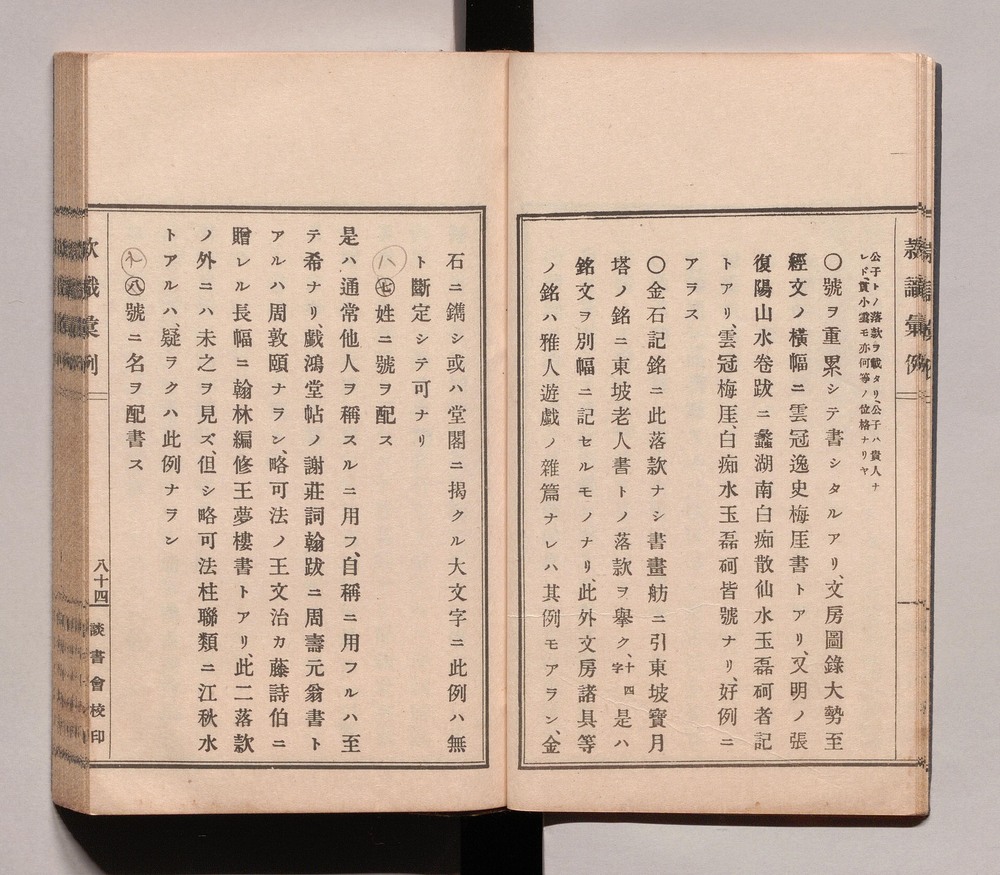 款識彙例
公子トノ落款ヲ載タリ、公子ハ貴人ナ
レド、貫小雲モ亦何等ノ位格ナリヤ
〇號ヲ重累シテ書シタルアリ、文房圖錄大勢至
經文ノ橫幅ニ雲冠逸史梅厓書トアリ、又明ノ張
復陽山水卷跋ニ蠡湖南白痴散仙水玉磊砢者記
トアリ、雲冠梅厓、白痴水玉磊砢皆號ナリ、好例ニ
アラス
〇金石記銘ニ此落款ナシ書畫舫ニ引東坡寶月
塔ノ銘ニ東坡老人書トノ落款ヲ擧ク、十四字是ハ
銘文ヲ別幅ニ記セルモノナリ、此外文房諸具等
ノ銘ハ雅人遊戲ノ雜篇ナレハ其例モアラン、金
石ニ鐫シ或ハ堂閣ニ揭クル大文字ニ此例ハ無
ト斷定シテ可ナリ
八 七 姓ニ號ヲ配ス
是ハ通常他人ヲ稱スルニ用フ、自稱ニ用フルハ至
テ希ナリ、戲鴻堂帖ノ謝莊詞翰跋ニ周壽元翁書ト
アルハ周敦頤ナラン、略可法ノ王文治カ藤詩伯ニ
贈レル長幅ニ翰林編修王夢樓書トアリ、此二落款
ノ外ニハ未之ヲ見ズ、但シ略可法桂聯類ニ江秋水
トアルハ、疑ヲクハ此例ナラン
九 八 號ニ名ヲ配書ス
八十四
談書會校印